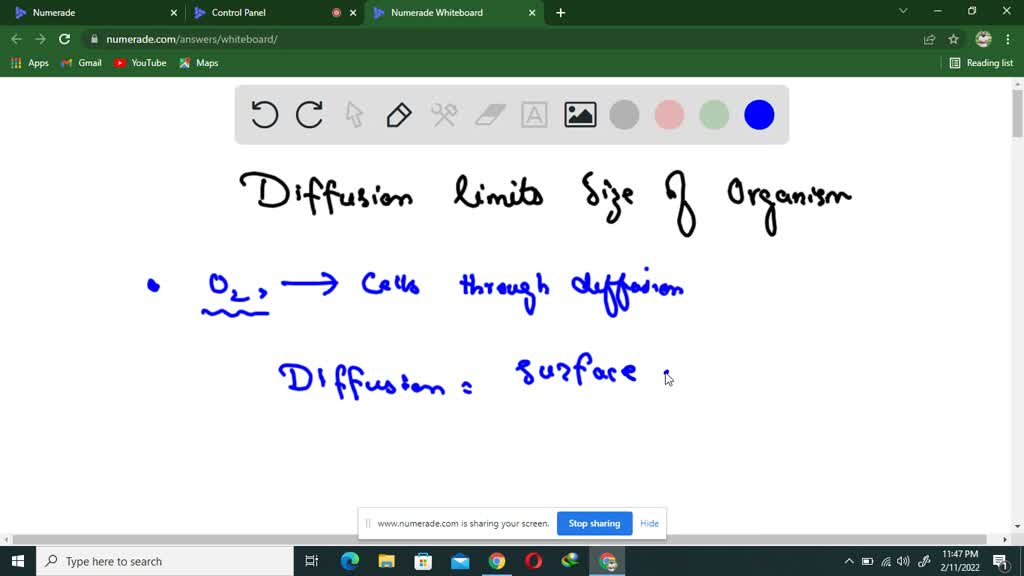 Numerade
Control Panel
Numerade Whiteboard
numerade.com/answers/whiteboard/
Apps Gmail YouTube Maps Reading list
A
Diffusion limits Size of Organism
• O2, → Cells through diffusion
Diffusion = Surface
www.numerade.com is sharing your screen. Stop sharing Hide
Type here to search
11:47 PM
2/11/2022
1